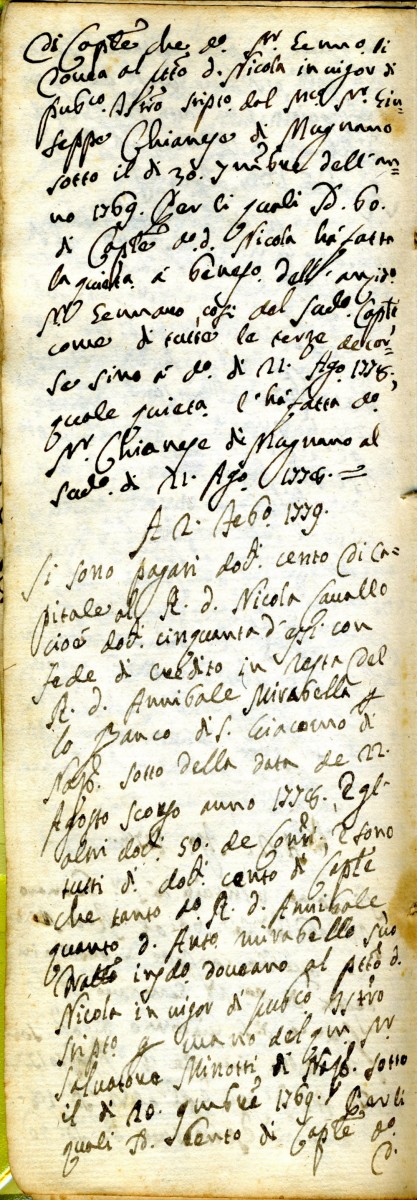 di Cap.le che d.o Sr. Gennº. li
dovea al ptto d. Nicola in vigor di
pub.co Istro stipto dal Mco Nr. Giu=
seppe Chianese di Mugnano
sotto il dì 30. 7mbre dell'an=
no 1769. Per li quali D. 60.
di Cap.le do. d. Nicola hà fatta
la quieta à benefo. dell'
Sr. Gennaro, così del sudo. Cap.le,
come di tutte le terze decor=
se sino à do. dì 21. Ago. 1778.,
quale quieta l'hà fatta do.
Nr. Chianese di Mugnano al
sudo. dì 21. Ago. 1778. =
A 2. Febo. 1779.
Si sono pagati dod. cento di Ca=
pitale al R. d. Nicola Cavallo
cioè dod. cinquanta d'essi con
fede di credito in testa del
R. d. Annibale Mirabella p
lo Banco di S. Giacomo di
Nap. sotto della data de 22.
Agosto scorso anno 1778., e gl'
altri dod. 50. de Conti, e sono
tutti di dod. cento di Cap.le
che tanto do. R. d. Annibale
quanto d. Anto. Mirabella suo
doveano al ptto d.
Nicola in vigor di pubco. Istro
stipto p mano del qm Nr.
Salvatore Minotti di Nap. sotto
il dì 20. 9mbre 1769. Per li
quali D. cento di Cap.le do.
d.